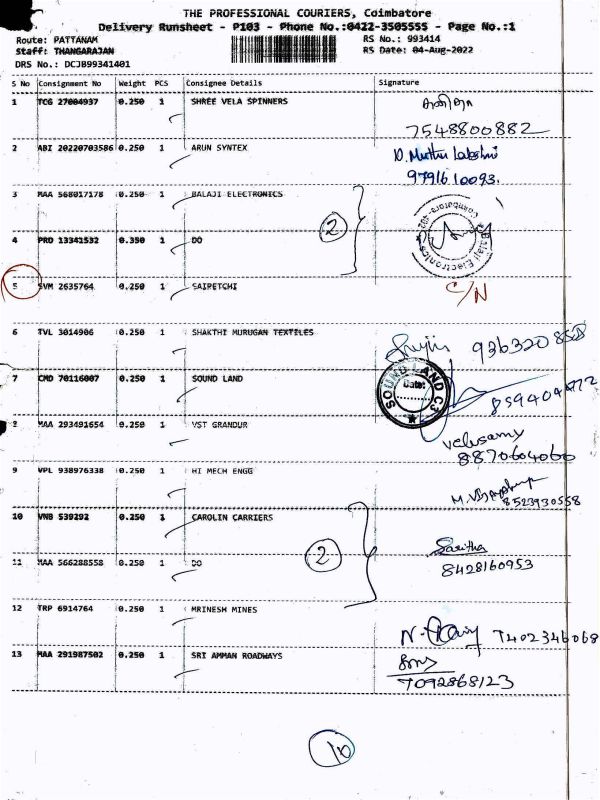 THE PROFESSIONAL COURIERS, Coimbatore
Delivery Runsheet - P103 - Phone No.:0422-3505555 - Page No.:1
Route: PATTANAM
RS No.: 993414
Staff: THANGARAJAN
RS Date: 04-Aug-2022
DRS No.: DCJB99341401
S No Consignment No Weight PCS Consignee Details Signature
1 TCG 27004937 0.250 1 SHREE VELA SPINNERS
7548800882
2 ABI 20220703586 0.250 1 ARUN SYNTEX D. Muthu Lakshmi
9791610093.
3 MAA 568017178 0.250 1 BALAJI ELECTRONICS
2
Balaji Electronics
4 PRO 13341532 0.350 1 DO
5 SVM 2635764 0.250 1 SAIPETCHI C/N
6 TVL 3014906 0.250 1 SHAKTHI MURUGAN TEXTILES
7 CMD 70116007 0.250 1 SOUND LAND
SOUND LAND
Date:
8 MAA 293491654 0.250 1 VST GRANDUR Velusamy
8870604060
9 VPL 938976338 0.250 1 HI MECH ENGG
8523930558
10 VNB 539292 0.250 1 CAROLIN CARRIERS
2
Saritha
11 MAA 566288558 0.250 1 DO 8428160953
12 TRP 6914764 0.250 1 MRINESH MINES
7402346068
13 MAA 291987502 0.250 1 SRI AMMAN ROADWAYS
7092868123
10